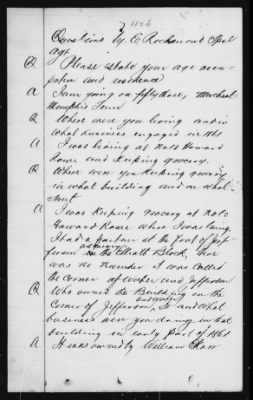 1126
Questions by E Rockwood Spcl
Agt
Q Please state your age occu-
pation and residence
A I am going on fifty three, merchant
Memphis Tenn
Q Where were you living and in
what business engaged in 1861
A I was living at No 10 Howard
Rowe and keeping grocery.
Q Where were you keeping grocery
in what building and on what
Street
A I was keeping grocery at No 10
Howard Rowe where I was living
I had a partner at the foot of Jef
ferson in the Block, there
was no number it was called
the corner of water and Jefferson
Q Who owned the Building on the
Corner of Jefferson and water St and what
business were you doing in that
building in early part of 1861
A It was owned by William